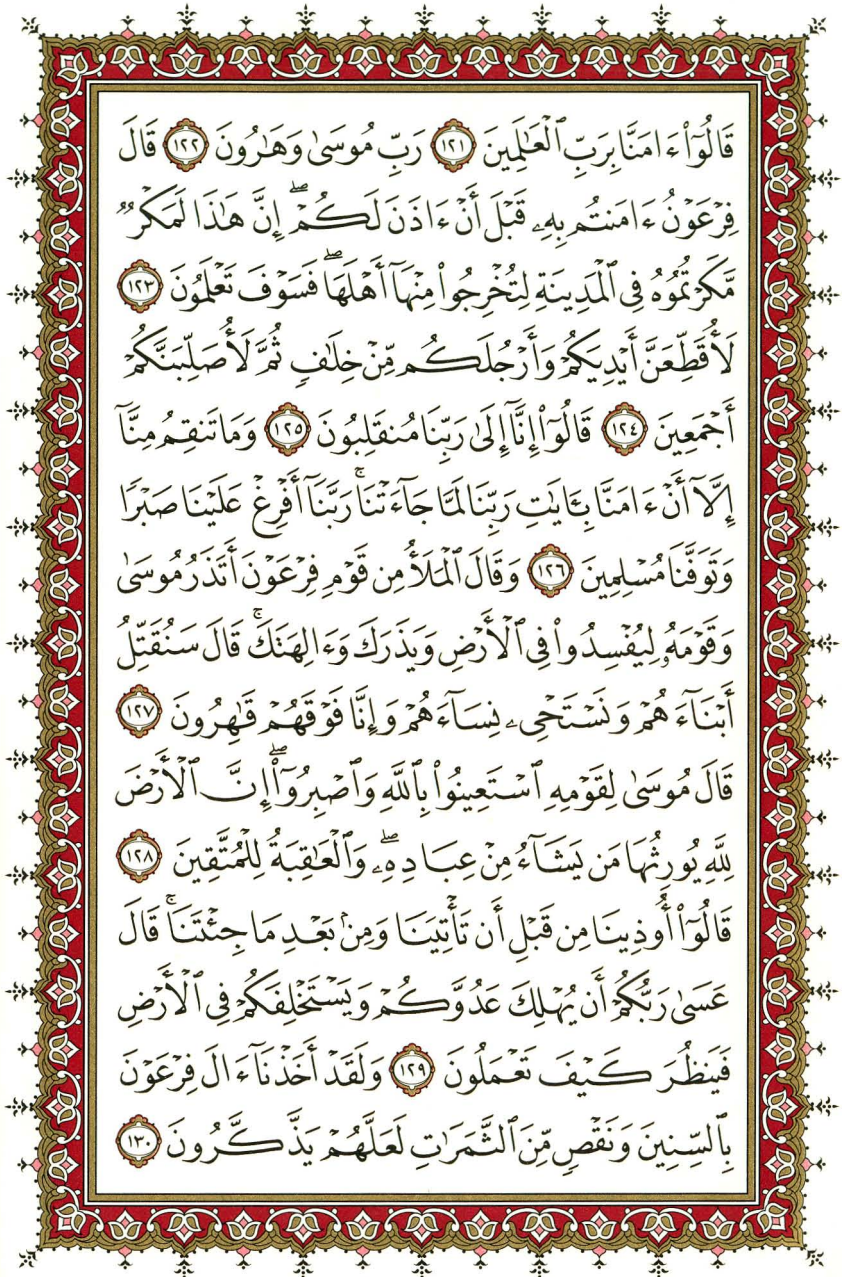 قَالُوٓا۟ ءَامَنَّا بِرَبِّ ٱلْعَٰلَمِينَ ١٢١ رَبِّ مُوسَىٰ وَهَٰرُونَ ١٢٢ قَالَ
فِرْعَوْنُ ءَامَنتُم بِهِۦ قَبْلَ أَنْ ءَاذَنَ لَكُمْ ۖ إِنَّ هَٰذَا لَمَكْرٌ
مَّكَرْتُمُوهُ فِى ٱلْمَدِينَةِ لِتُخْرِجُوا۟ مِنْهَآ أَهْلَهَا ۖ فَسَوْفَ تَعْلَمُونَ ١٢٣
لَأُقَطِّعَنَّ أَيْدِيَكُمْ وَأَرْجُلَكُم مِّنْ خِلَٰفٍ ثُمَّ لَأُصَلِّبَنَّكُمْ
أَجْمَعِينَ ١٢٤ قَالُوٓا۟ إِنَّآ إِلَىٰ رَبِّنَا مُنقَلِبُونَ ١٢٥ وَمَا تَنقِمُ مِنَّآ
إِلَّآ أَنْ ءَامَنَّا بِـَٔايَٰتِ رَبِّنَا لَمَّا جَآءَتْنَا ۚ رَبَّنَآ أَفْرِغْ عَلَيْنَا صَبْرًا
وَتَوَفَّنَا مُسْلِمِينَ ١٢٦ وَقَالَ ٱلْمَلَأُ مِن قَوْمِ فِرْعَوْنَ أَتَذَرُ مُوسَىٰ
وَقَوْمَهُۥ لِيُفْسِدُوا۟ فِى ٱلْأَرْضِ وَيَذَرَكَ وَءَالِهَتَكَ ۚ قَالَ سَنُقَتِّلُ
أَبْنَآءَهُمْ وَنَسْتَحْىِۦ نِسَآءَهُمْ وَإِنَّا فَوْقَهُمْ قَٰهِرُونَ ١٢٧
قَالَ مُوسَىٰ لِقَوْمِهِ ٱسْتَعِينُوا۟ بِٱللَّهِ وَٱصْبِرُوٓا۟ ۖ إِنَّ ٱلْأَرْضَ
لِلَّهِ يُورِثُهَا مَن يَشَآءُ مِنْ عِبَادِهِۦ ۖ وَٱلْعَٰقِبَةُ لِلْمُتَّقِينَ ١٢٨
قَالُوٓا۟ أُوذِينَا مِن قَبْلِ أَن تَأْتِيَنَا وَمِنۢ بَعْدِ مَا جِئْتَنَا ۚ قَالَ
عَسَىٰ رَبُّكُمْ أَن يُهْلِكَ عَدُوَّكُمْ وَيَسْتَخْلِفَكُمْ فِى ٱلْأَرْضِ
فَيَنظُرَ كَيْفَ تَعْمَلُونَ ١٢٩ وَلَقَدْ أَخَذْنَآ ءَالَ فِرْعَوْنَ
بِٱلسِّنِينَ وَنَقْصٍ مِّنَ ٱلثَّمَرَٰتِ لَعَلَّهُمْ يَذَّكَّرُونَ ١٣٠